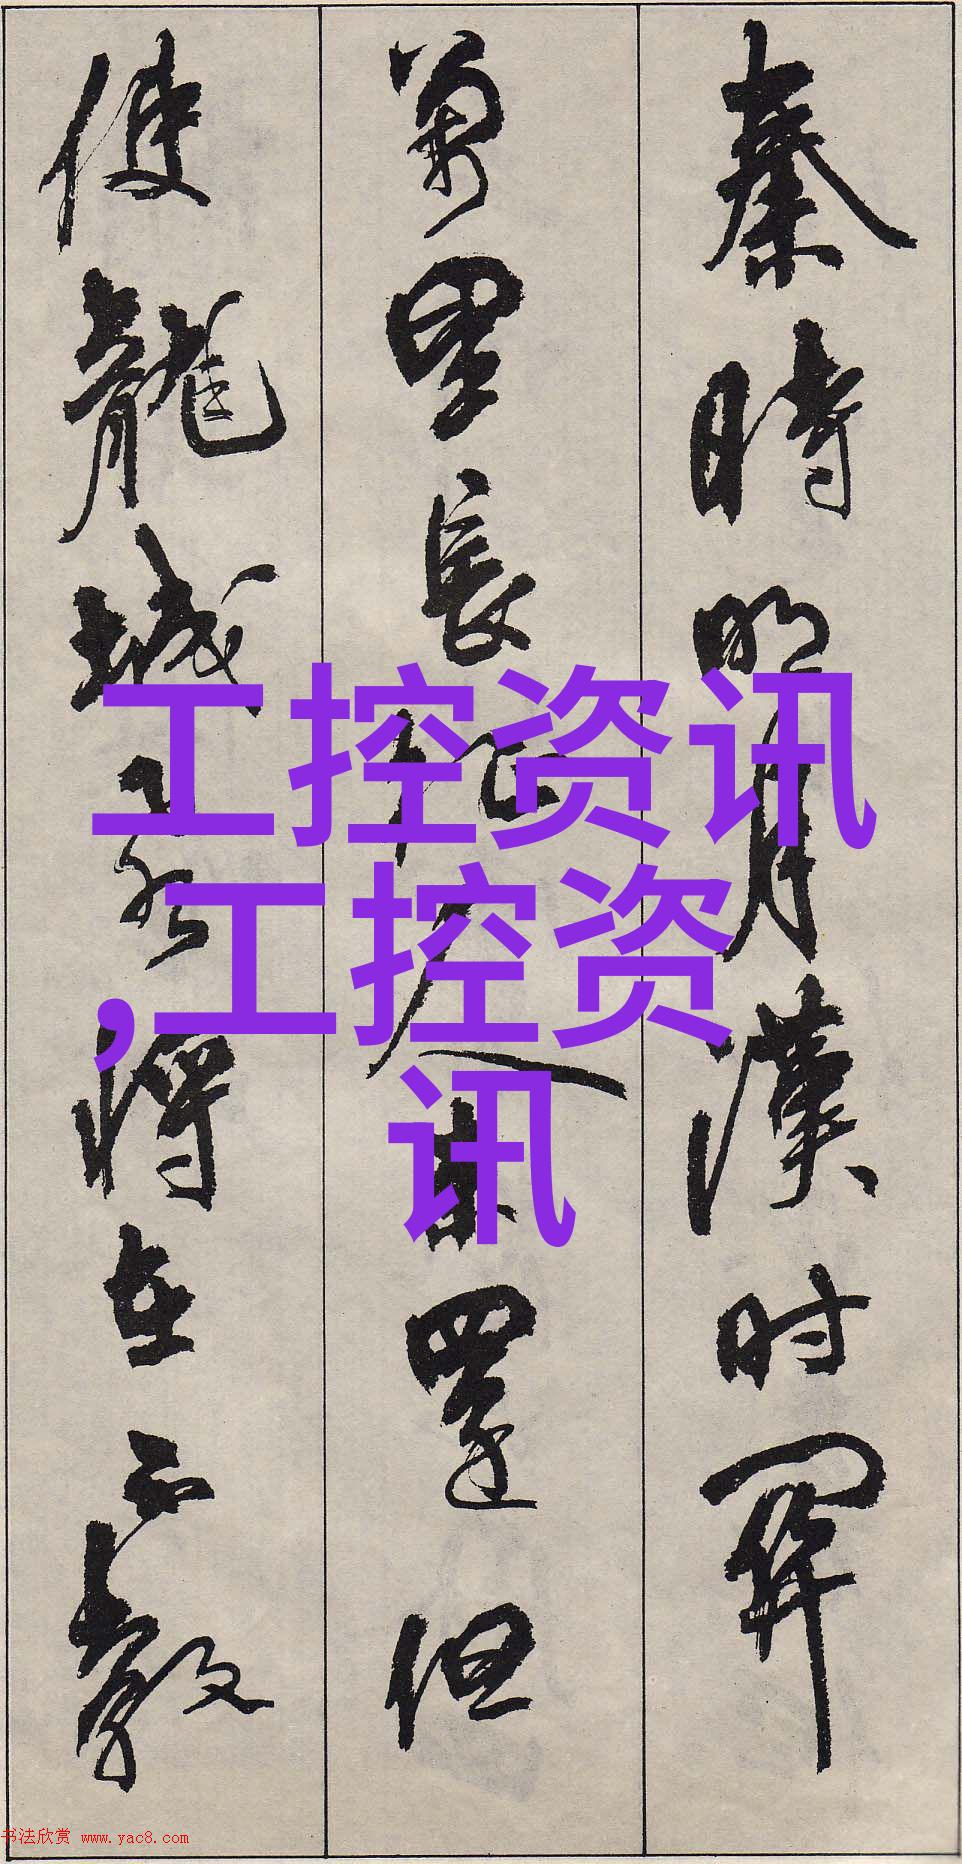 秦時明月漢时關
萬里長征人未還但
使龍城飛將在不教
工控资讯
,工控资
讯
书法欣赏 www.yac8.com